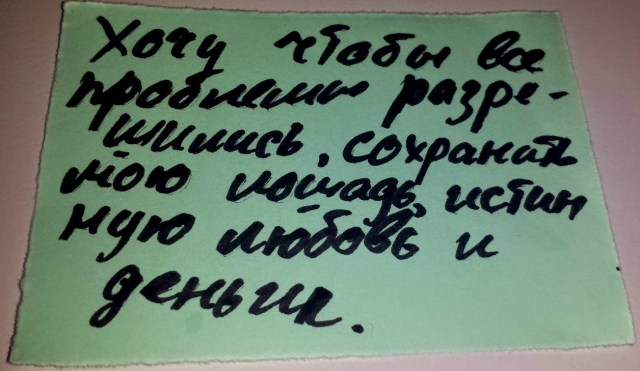 Хочу чтобы все
проблемы разре-
шились, сохранить
мою лошадь, истин
ную любовь и
деньги.